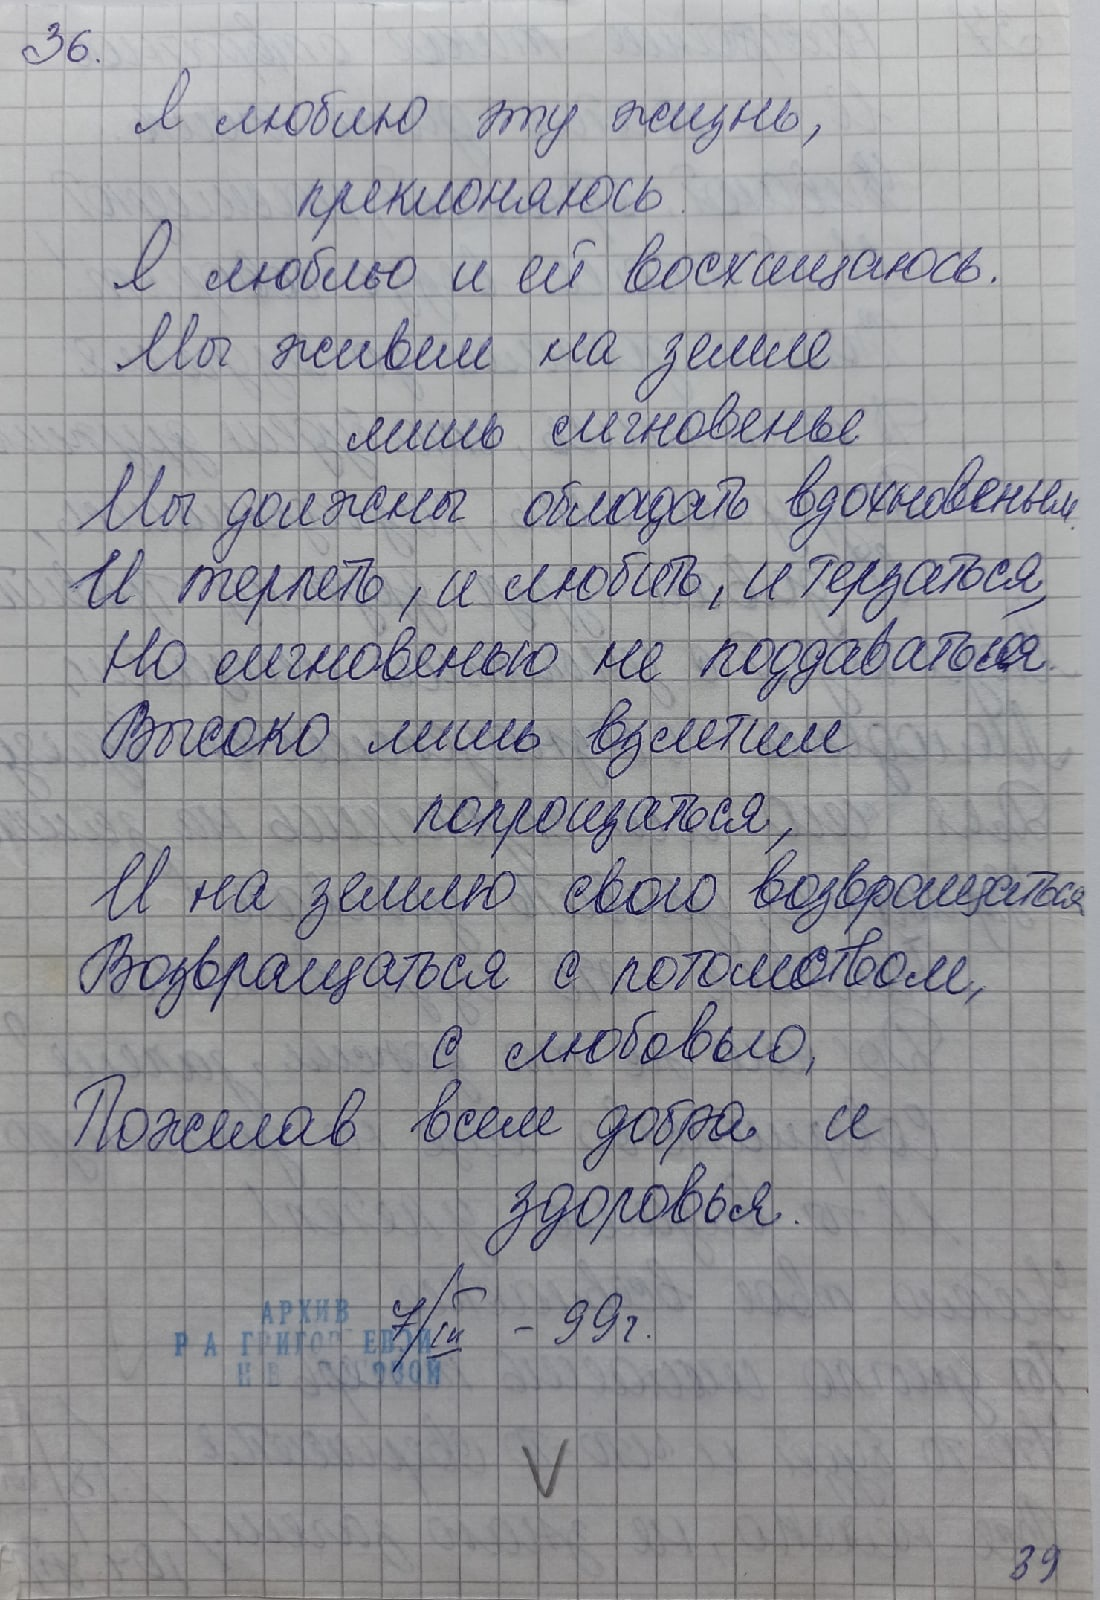 36.
Я люблю эту жизнь,
преклоняюсь
Я люблю и ей восхищаюсь.
Мы живем на земле
лишь мгновенье
Мы должны обладать вдохновеньем.
И терпеть, и любить, и терзаться,
Но мгновенью не поддаваться.
Высоко лишь взлетим
попрощаться,
И на землю свою возвращаться
Возвращаться с потомством,
с любовью,
Пожелав всем добра и
здоровья.
7/III - 99г.
АРХИВ
Р А
V
39